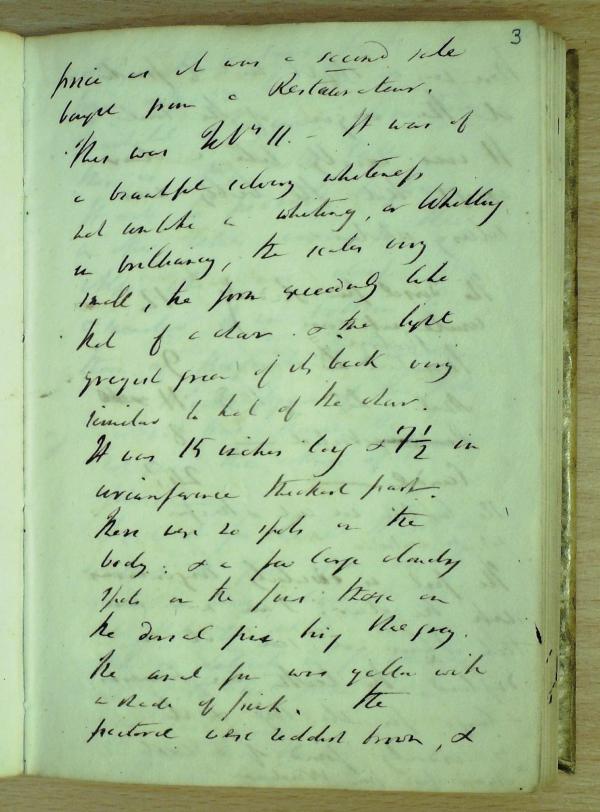 3
price as it was a second sale
bought from a Restaurateur.
This was Feb^y 11. It was of
a beautiful silvery whiteness
not unlike a whiting, or Whitling
in brilliancy, the scales very
small, the form exceedingly like
that of a char & the light
greyest green of its back very
similar to that of the char.
It was 15 inches long & 7 1/2 in
circumference thickest part.
There were 20 spots on the
body: & a few large cloudy
spots on the fins those on
the dorsal fin being
The anal fin was yellow with
a shade of pink. The
pectoral were reddish brown, &